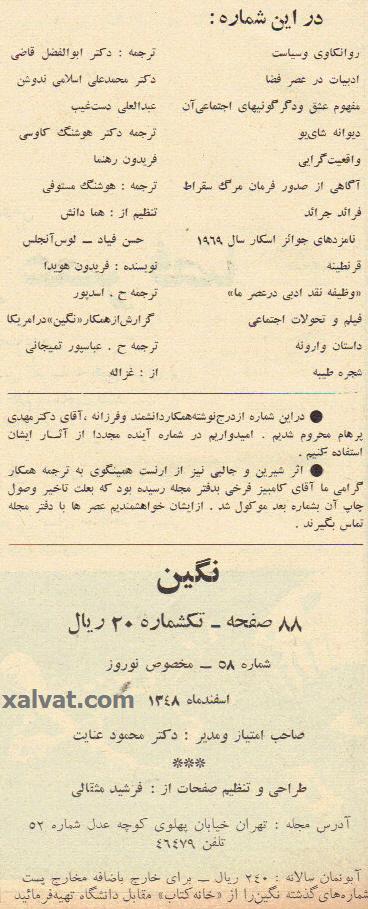 در این شماره :
روانکاوی وسیاست ترجمه : دکتر ابوالفضل قاضی
ادبیات در عصر فضا دکتر محمدعلی اسلامی ندوشن
مفهوم عشق ودگرگونیهای اجتماعی‌آن عبدالعلی دست‌غیب
دیوانه شای‌یو ترجمه دکتر هوشنگ کاوسی
واقعیت‌گرایی فریدون رهنما
آگاهی از صدور فرمان مرگ سقراط ترجمه : هوشنگ مستوفی
فرائد جرائد تنظیم از : هما دانش
نامزدهای جوائز اسکار سال ۱۹۶۹ حسن فیاد ــ لوس‌آنجلس
قرنطینه نویسنده : فریدون هویدا
«وظیفه نقد ادبی درعصر ما» ترجمه ح . اسدپور
فیلم و تحولات اجتماعی گزارش‌ازهمکار«نگین»درامریکا
داستان وارونه ترجمه ح . عباسپور تمیجانی
شجره طیبه از : غزاله
● دراین شماره ازدرج‌نوشته‌همکاردانشمند وفرزانه ،آقای دکترمهدی
پرهام محروم شدیم . امیدواریم در شماره آینده مجددا از آثـار ایشان
استفاده کنیم .
● اثر شیرین و جالبی نیز از ارنست همینگوی به ترجمه همکار
گرامی ما آقای کامبیز فرخی بدفتر مجله رسیده بود که بعلت تاخیر وصول
چاپ آن بشماره بعد موکول شد . ازایشان خواهشمندیم عصر ها با دفتر مجله
تماس بگیرند .
نگین
۸۸ صفحه ــ تکشماره ۲۰ ریال
شماره ۵۸ ــ مخصوص نوروز
اسفندماه ۱۳۴۸
xalvat.com
صاحب امتیاز ومدیر : دکتر محمود عنایت
***
طراحی و تنظیم صفحات از : فرشید مثقالی
آدرس مجله : تهران خیابان پهلوی کوچه عدل شماره ۵۲
تلفن ۴۶۴۷۹
آبونمان سالانه : ۲۴۰ ریال ــ برای خارج باضافه مخارج پست
شماره‌های‌گذشته نگین‌را از «خانه‌کتاب» مقابل دانشگاه تهیه‌فرمائید